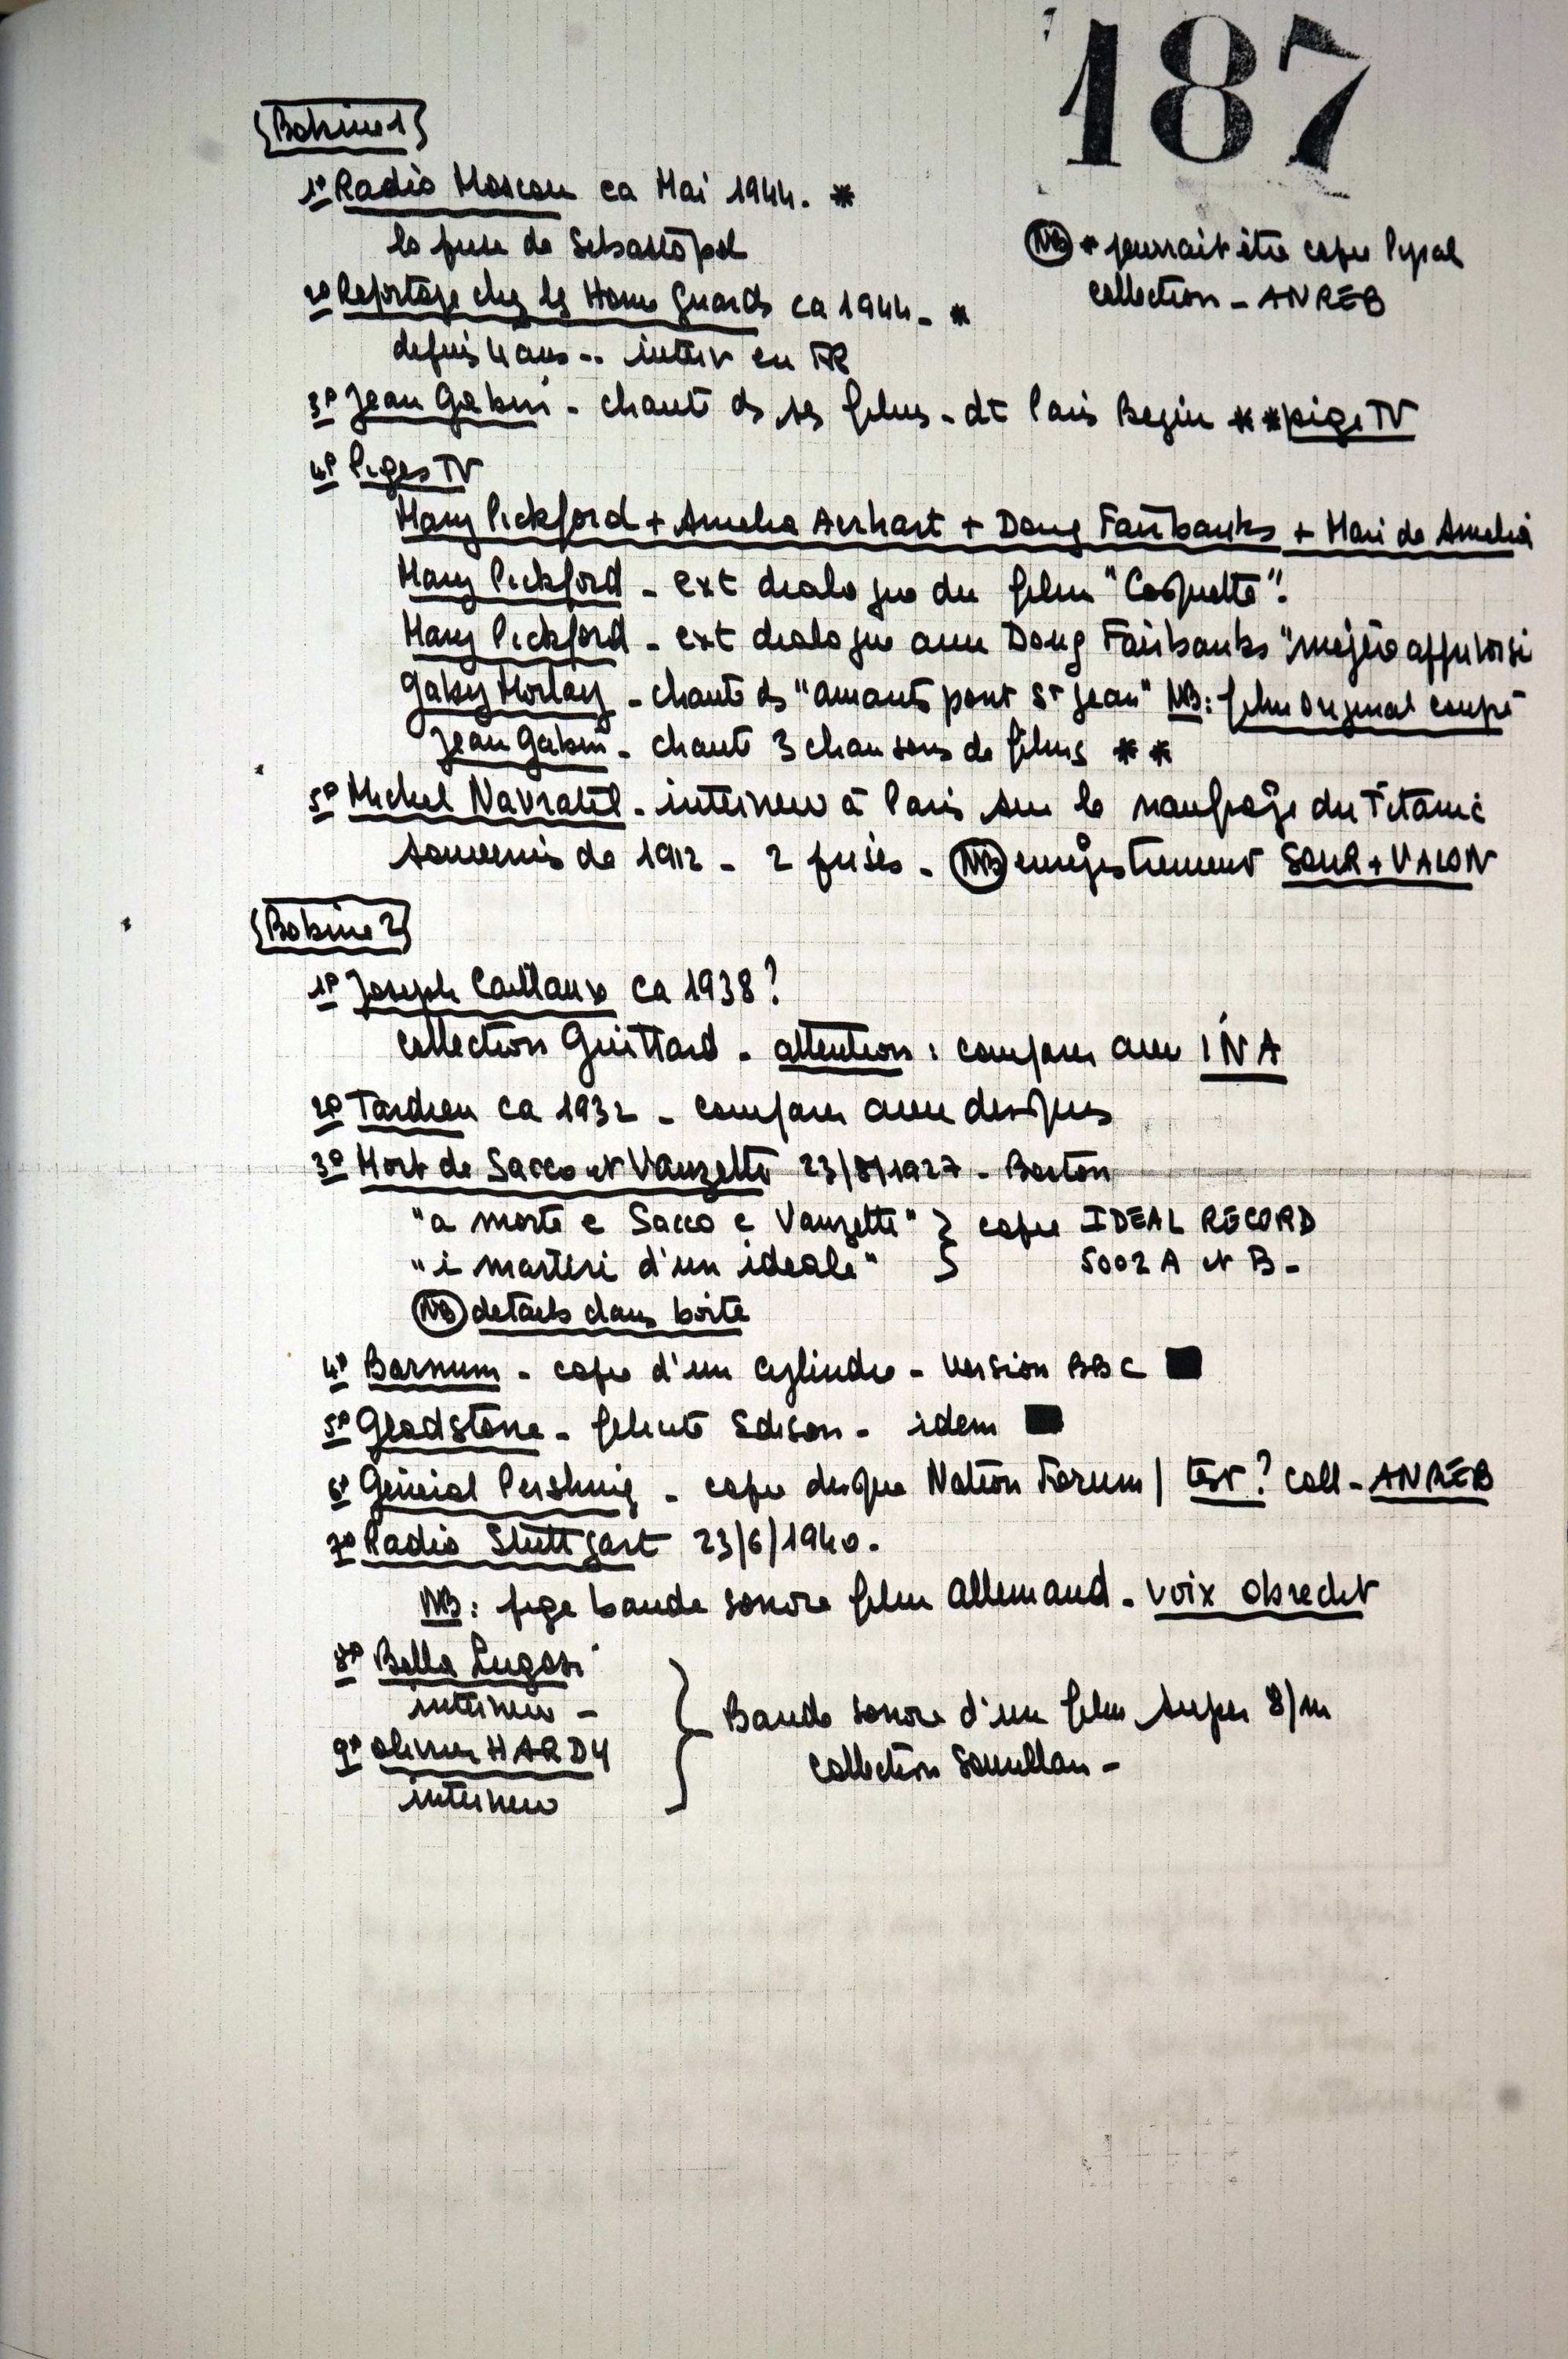 187
Bobine 1
1° Radio Moscou ca Mai 1944. *
la prise de Sebastopol
NB * pourrait être copie Pypal
collection - ANREB
2° Reportage chez les Home Guards ca 1944 - *
depuis 4 ans -- interv en FR
3° Jean Gabin - chante ds ses films - dt Paris Beguin * * pige TV
4° Piges TV
Mary Pickford + Amelia Aerhart + Doug Fairbanks + Mari de Amelia
Mary Pickford - ext dialogue du film "Coquette".
Mary Pickford - ext dialogue avec Doug Fairbanks "mégère apprivoisé
Gaby Morlay - chante ds "amants pont St Jean" NB: film original coupé
Jean Gabin - chante 3 chansons de films * *
5° Michel Navratil - interview à Paris sur le naufrage du Titanic
souvenirs de 1912 - 2 prises - NB enregistrement SOUR + VALON
Bobine 2
1° Joseph Caillaux ca 1938 ?
collection Guittard - attention : comparer avec INA
2° Tardieu ca 1932 - comparer avec disques
3° Mort de Sacco et Vanzetti 23/8/1927 - Boston
"a morte e Sacco e Vanzette" } copie IDEAL RECORD
"i marteri d'un ideale" } 5002 A et B -
NB details dans boite
4° Barnum - copie d'un cylindre - version BBC
5° Gladstone - felicite Edison - idem
6° Général Pershing - copie disque Nation Forum / test ? coll - ANREB
7° Radio Stuttgart 23/6/1940.
NB : pige bande sonore film allemand - voix obrecht
8° Bella Lugosi
interview -
9° oliver HARDY
interview
} Bande sonore d'un film super 8/m
collection